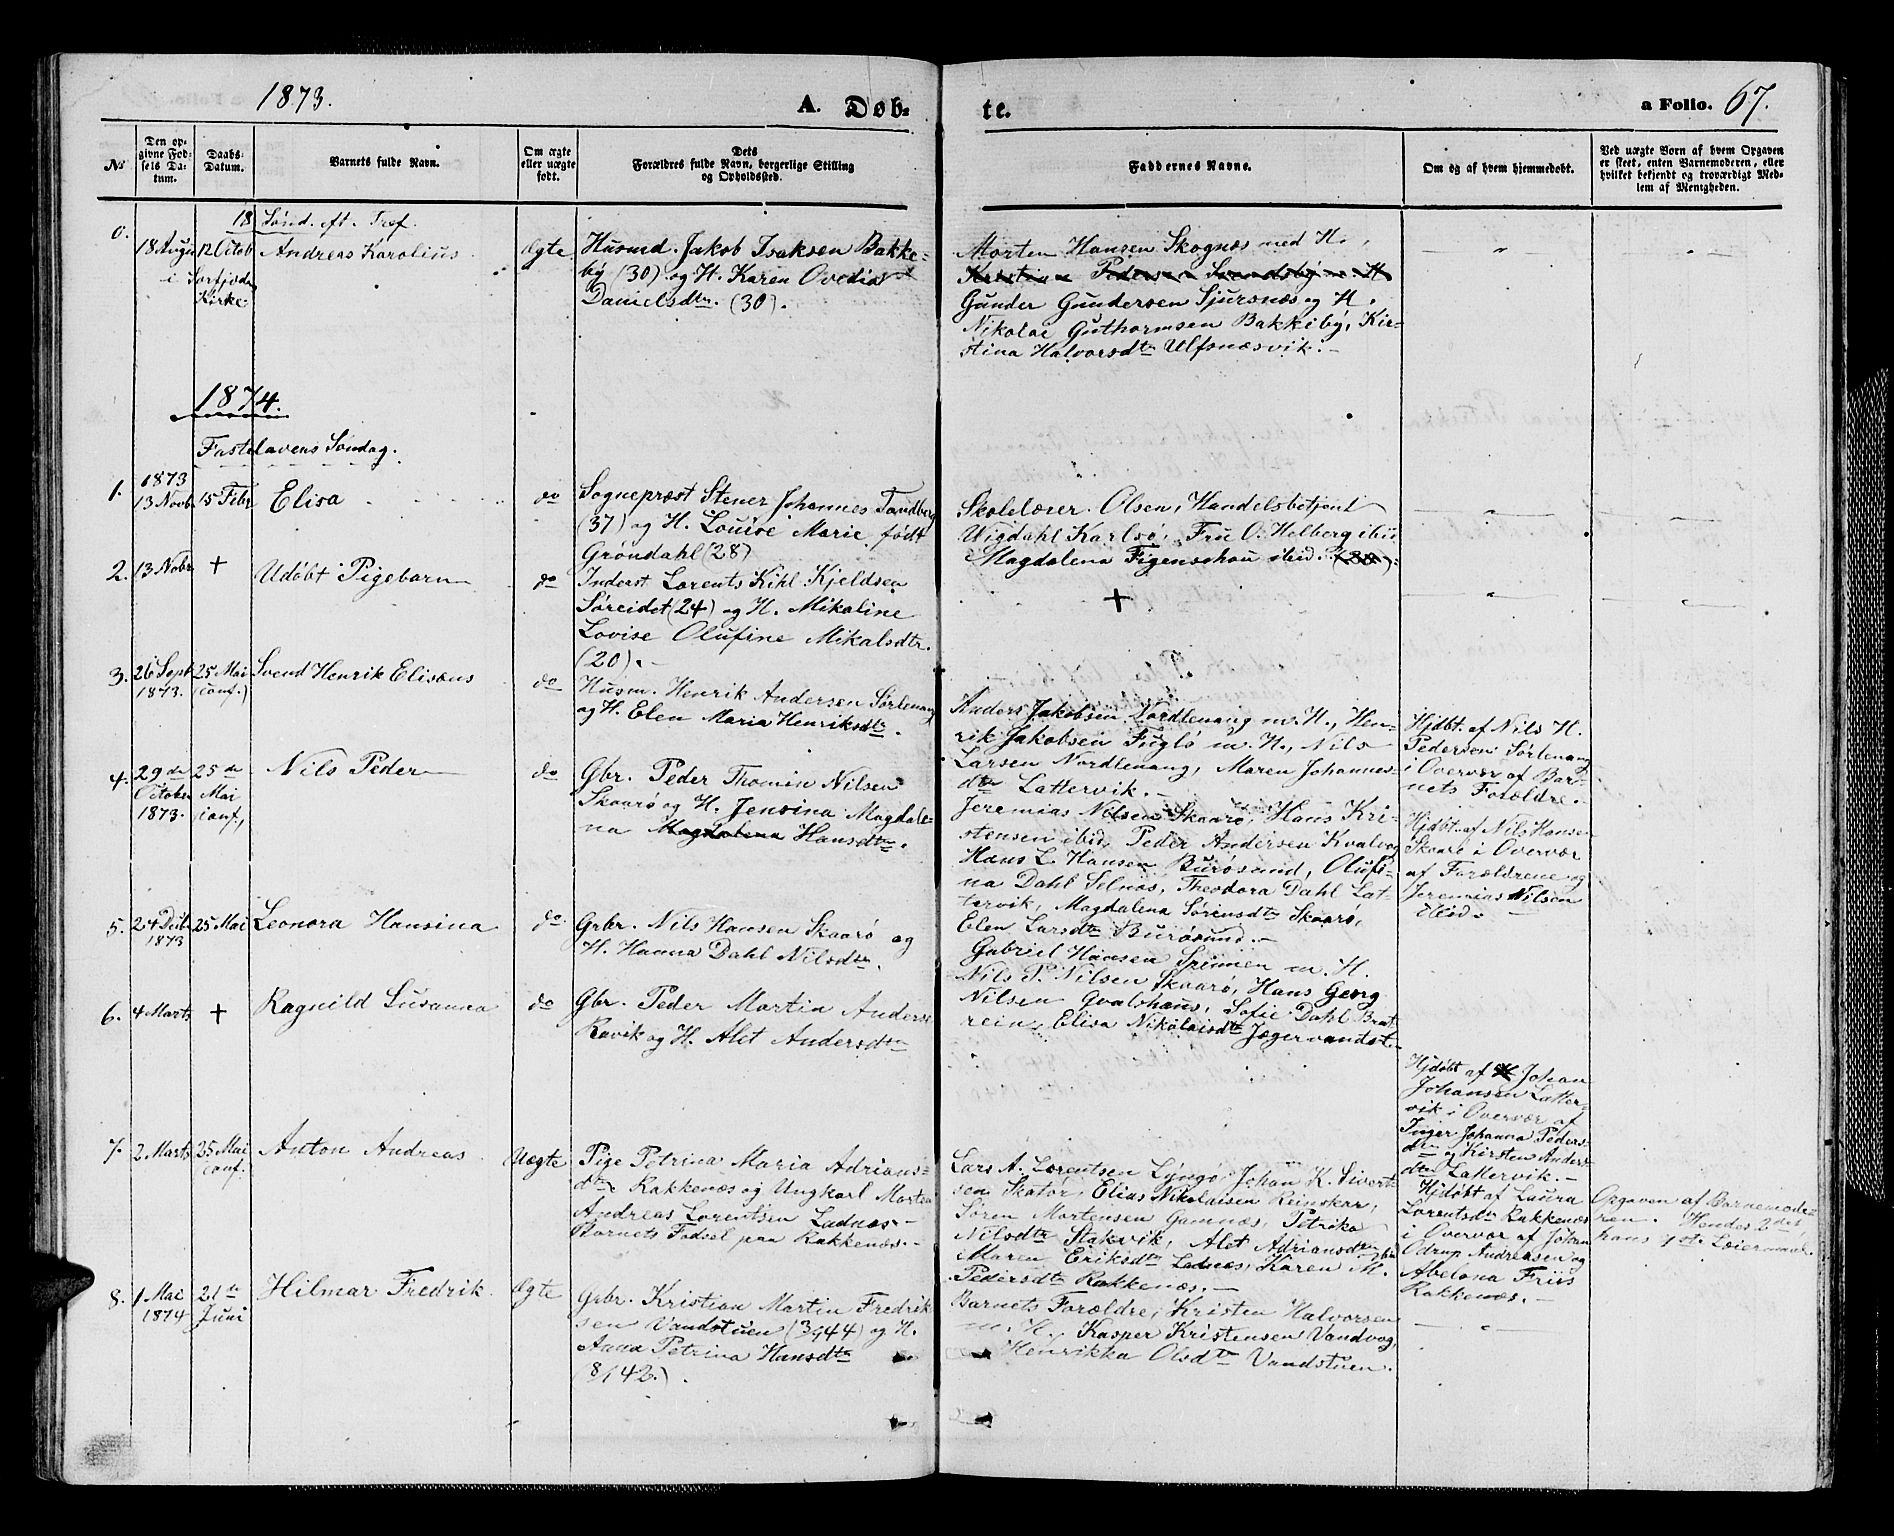 1873.
A. Døb-
te.
a Folio. 67.
No
Den op-
givne Fød-
sels Da-
tum.
Daabs-
Datum.
Barnets fulde Navn.
Om ægte
eller uægte
født.
Dets
Forældres fulde Navn, borgerlige Stilling
og Opholdssted.
Faddernes Navne.
Om og af hvem hjemmedøbt.
Ved uægte Børn af hvem Opgaven
er skeet, enten Barnemoderen, eller
hvilket bekjendt og troværdigt Med-
lem af Menigheden.
18 Sønd. eft. Tref.
0.
18 Augu
i Sørfjorden
Kirke
12 Octob
Andreas Karolius
Ægte
Husmd. Jakob Isaksen Bakke-
by (30) og H. Karen Ovedia
Danielsdtr. (30).
Morten Hansen Skognæs med H.,
Gunder Gundersen Sjursnæs og H.
Nikolai Guthormsen Bakkeby, Kir-
stina Halvorsdtr Ulfsnæsvik.
1874.
Fastelavens Søndag.
1.
1873
13 Novb.
15 Febr
Elisa
do
Sognepræst Stener Johannes Sandberg
(37) og H. Louise Marie født
Grøndahl (28)
Skolelærer Olsen, Handelsbetjent
Wigdahl Karlsø, Fru O. Helberg ibid
Magdalena Figenschau ibid.
2.
13 Nobr
+
Udøbt Pigebarn
do
Inderst Lorents Kihl Kjeldsen
Søreidet (24) og H. Mikaline
Lovise Olufine Mikalsdtr.
(20).
+
3.
26 Sept
1873.
25 Mai
(conf.)
Svend Henrik Elisæus
do
Husm. Henrik Andersen Sørlenang
og H. Elen Maria Henriksdtr.
Anders Jakobsen Nordlenang m. H., Hen-
rik Jakobsen Fuglø m. H., Nils
Larsen Nordlenang, Maren Johannes-
dtr Lattervik.
Hjdbt. af Nils H.
Pedersen Sørlenang
i Overvær af Bar-
nets Forældre.
4.
29de
October
1873.
25de
Mai
(conf.)
Nils Peder
do
Gbr. Peder Thomin Nilsen
Skaarø og H. Jensina Magdale-
na Magdalena Hansdtr.
Jeremias Nilsen Skaarø, Hans Kri-
stensen ibid, Peder Andersen Kvalvog
Hans L. Hansen Burøsund, Olufi-
na Dahl Selnæs, Theodora Dahl Lat-
tervik, Magdalena Sørensdtr Skaarø,
Elen Larsdtr Burøsund.
Hjdbt. af Nils Hansen
Skaarø i Overvær
af Forældrene og
Jeremias Nilsen
ibid.
5.
24 Dcb.
1873
25 Mai
Leonora Hansina
do
Grbr. Nils Hansen Skaarø og
H. Hanna Dahl Nilsdtr.
Gabriel Hansen Spinnen m. H.
Nils P. Nilsen Skaarø, Hans Georg
Nilsen Qvalshaus, Sofie Dahl Brat-
rein, Elisa Nikolaisdtr Jægervandet.
6.
4 Marts
+
Ragnild Susanna
do
Gbr. Peder Martin Anders
Ravik og H. Alet Andersdtr
7.
2 Marts
25 Mai
(conf.)
Anton Andreas
Uægte
Pige Petrina Maria Adrians-
dtr Rakkenæs og Ungkarl Morten
Andreas Lorentsen Ladnæs.
Barnets Fødsel paa Rakkenæs.
Lars A. Lorentsen Lyngø, Johan K. Sivert-
sen Skatør, Elias Nikolaisen Reinskar,
Søren Mortensen Gamnæs, Petrika
Nilsdtr Stakvik, Alet Adriansdtr ibid
Maren Eriksdtr Ladnæs, Karen M.
Pedersdtr Rakkenæs.
Hjdøbt af Johan
Johansen Latter-
vik i Overvær af
Inger Johanna Peders-
dtr og Kirsten Anders-
dtr Lattervik.
Hjdøbt af Laura
Lorentsdtr Rakkenæs
i Overvær af Johan
Odrup Andreasen og
Abelona Friis
Rakkenæs.
Opgaven af Barnemode-
ren. Hendes 2det
hans 1ste Leiermaal.
8.
1 Mai
1874
21de
Juni
Hilmar Fredrik.
Ægte
Grbr. Kristian Martin Fredrik
sen Vandstuen (3/9 44) og H.
Anna Petrina Hansdtr
(8/1 42.).
Barnets Forældre, Kristen Halvorsen
m. H., Kasper Kristensen Vandvog,
Henrikka Olsdtr Vandstuen.